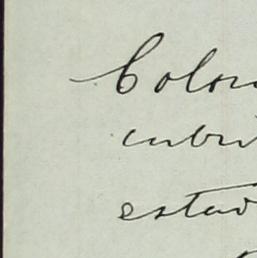 Colon
cubri
estad